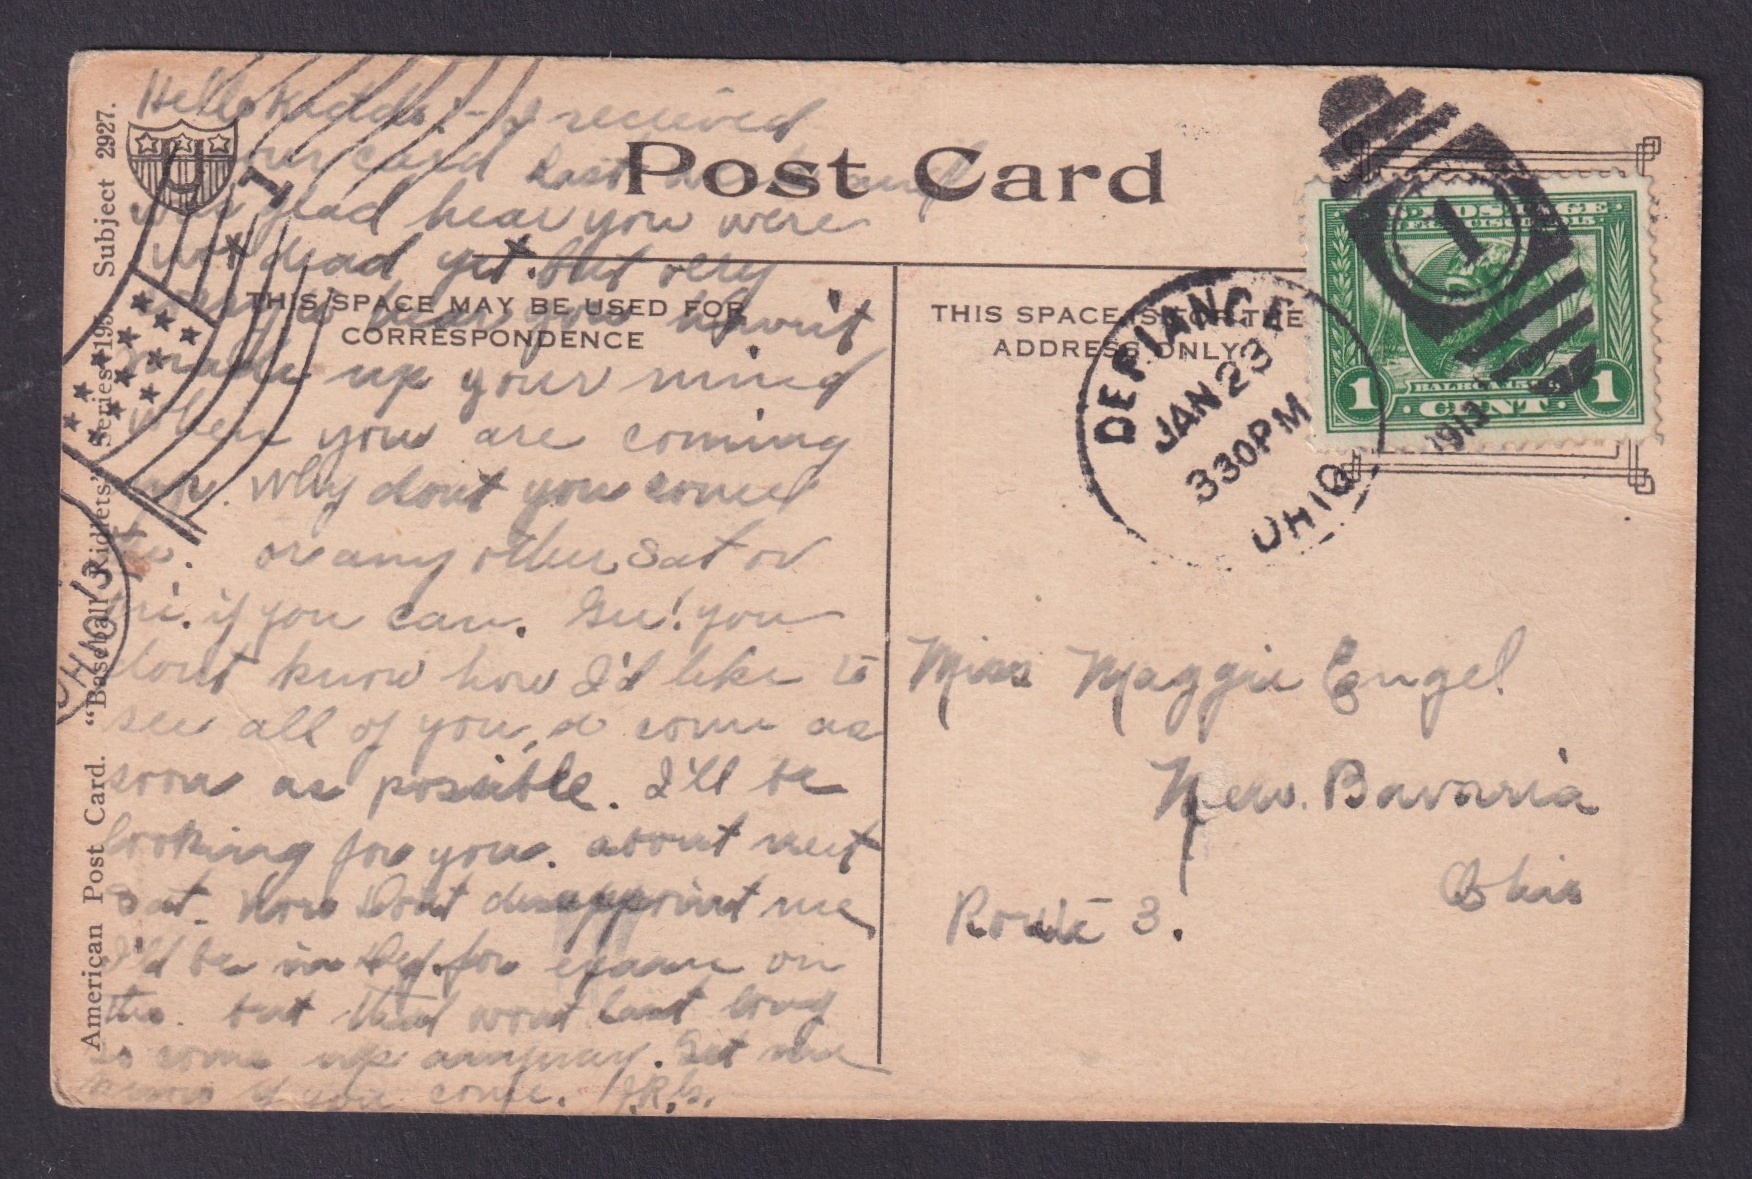 Hello Kiddo:- I recieved
our card last
was glad hear you were
not dead yet. but
you
made up your mind
when you are coming
up. Why dont you come
or any other Sat or
Fri. if you can. Gee! you
dont know how I'd like to
see all of you, come as
soon as possible. I'll be
looking for you. about next
Sat. Now Dont disappoint me
I'd be in for exam on
but that wont last long
so come up anyway. Let me
know if you come. J.R.G.
American Post Card. "Baseball Kidlets" Series 193 Subject 2927.
Post Card
THIS SPACE MAY BE USED FOR
CORRESPONDENCE
THIS SPACE IS FOR THE
ADDRESS ONLY
DEFIANCE
JAN 23
330PM
1913
OHIO
1
U.S. POSTAGE
SAN FRANCISCO 1915
BALBOA 1513
1 CENT 1
Miss Maggie Engel
New. Bavaria
Ohio
Route 3.
U
1
OHIO 13